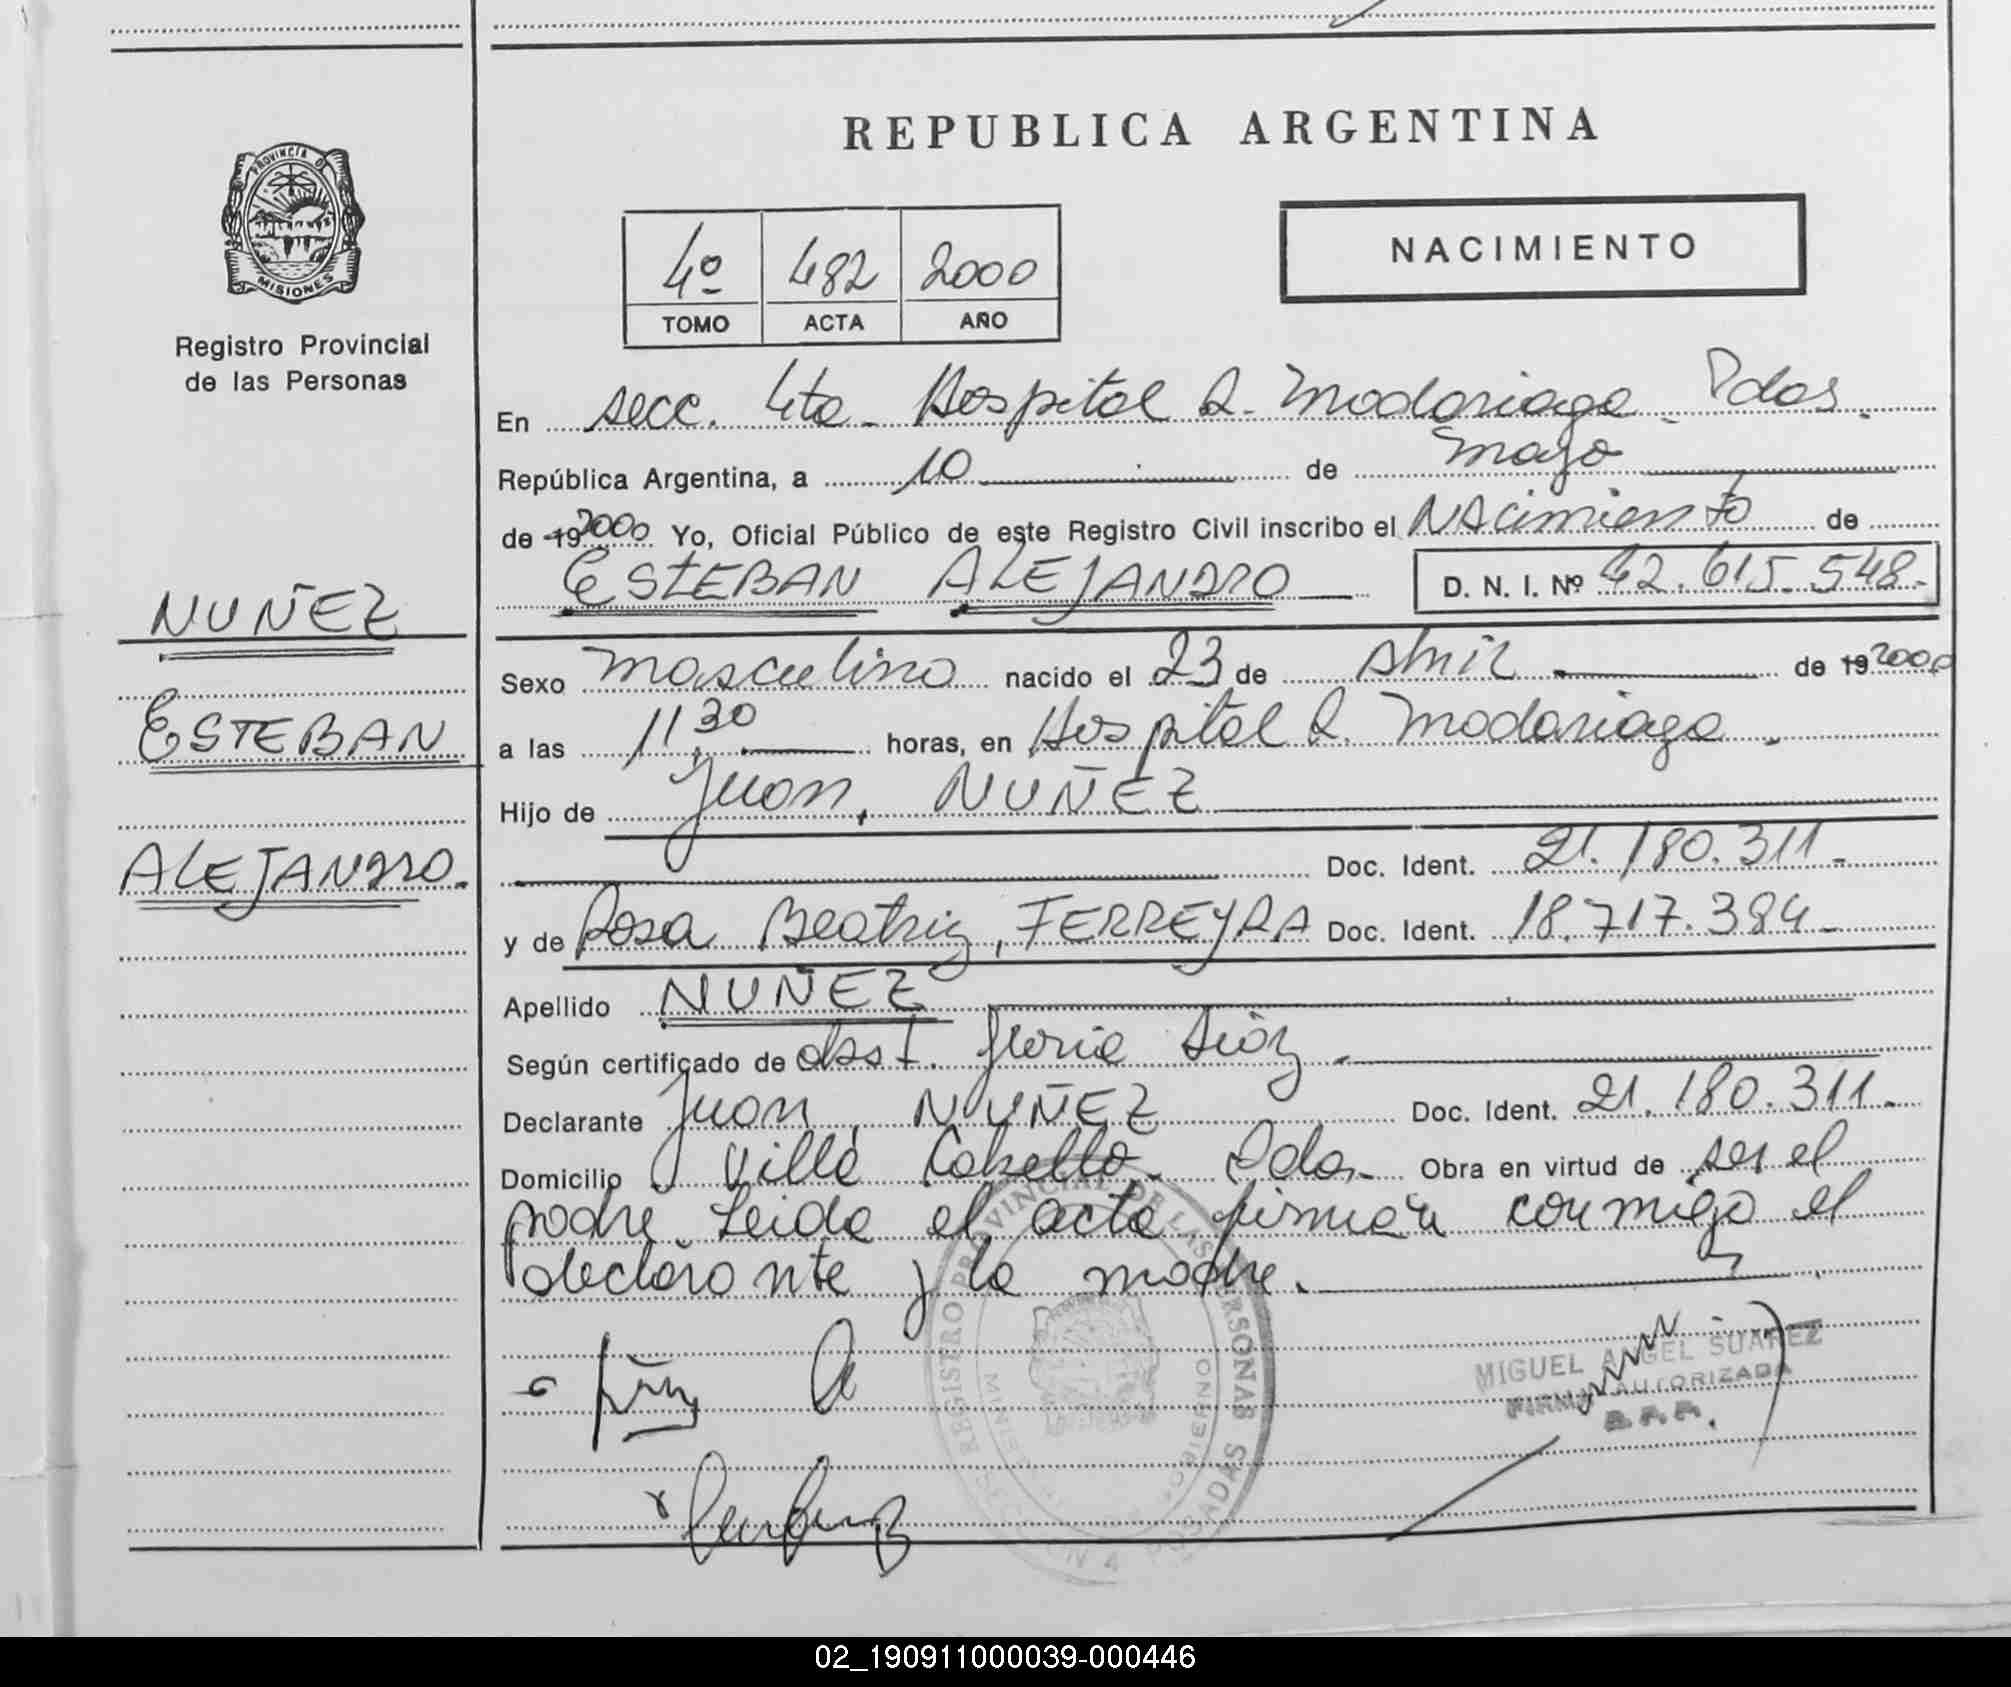 PROVINCIA DE
MISIONES
Registro Provincial
de las Personas
NUÑEZ
ESTEBAN
ALEJANDRO.
REPUBLICA ARGENTINA
4º 482 2000
TOMO ACTA AÑO
NACIMIENTO
En secc. 4ta. Hospital R. Madariaga. Pdas.
República Argentina, a 10 de mayo
de 19 2000 Yo, Oficial Público de este Registro Civil inscribo el Nacimiento de
ESTEBAN ALEJANDRO D. N. I. Nº 42.615.548.
Sexo masculino nacido el 23 de Abril de 19 2000
a las 11,30 horas, en Hospital R. Madariaga.
Hijo de Juan, NUÑEZ
Doc. Ident. 21.180.311.
y de Rosa Beatriz, FERREYRA Doc. Ident. 18.717.384.
Apellido NUÑEZ
Según certificado de obst. Gloria Diaz.
Declarante Juan NUÑEZ Doc. Ident. 21.180.311.
Domicilio Villa Cabello. Pdas. Obra en virtud de ser el
padre. Leida el acta firman conmigo el
declarante y la madre.
REGISTRO PROVINCIAL DE LAS PERSONAS
GOBIERNO
SECCION 4 POSADAS
MIGUEL ANGEL SUAREZ
FIRMA AUTORIZADA
02_190911000039-000446